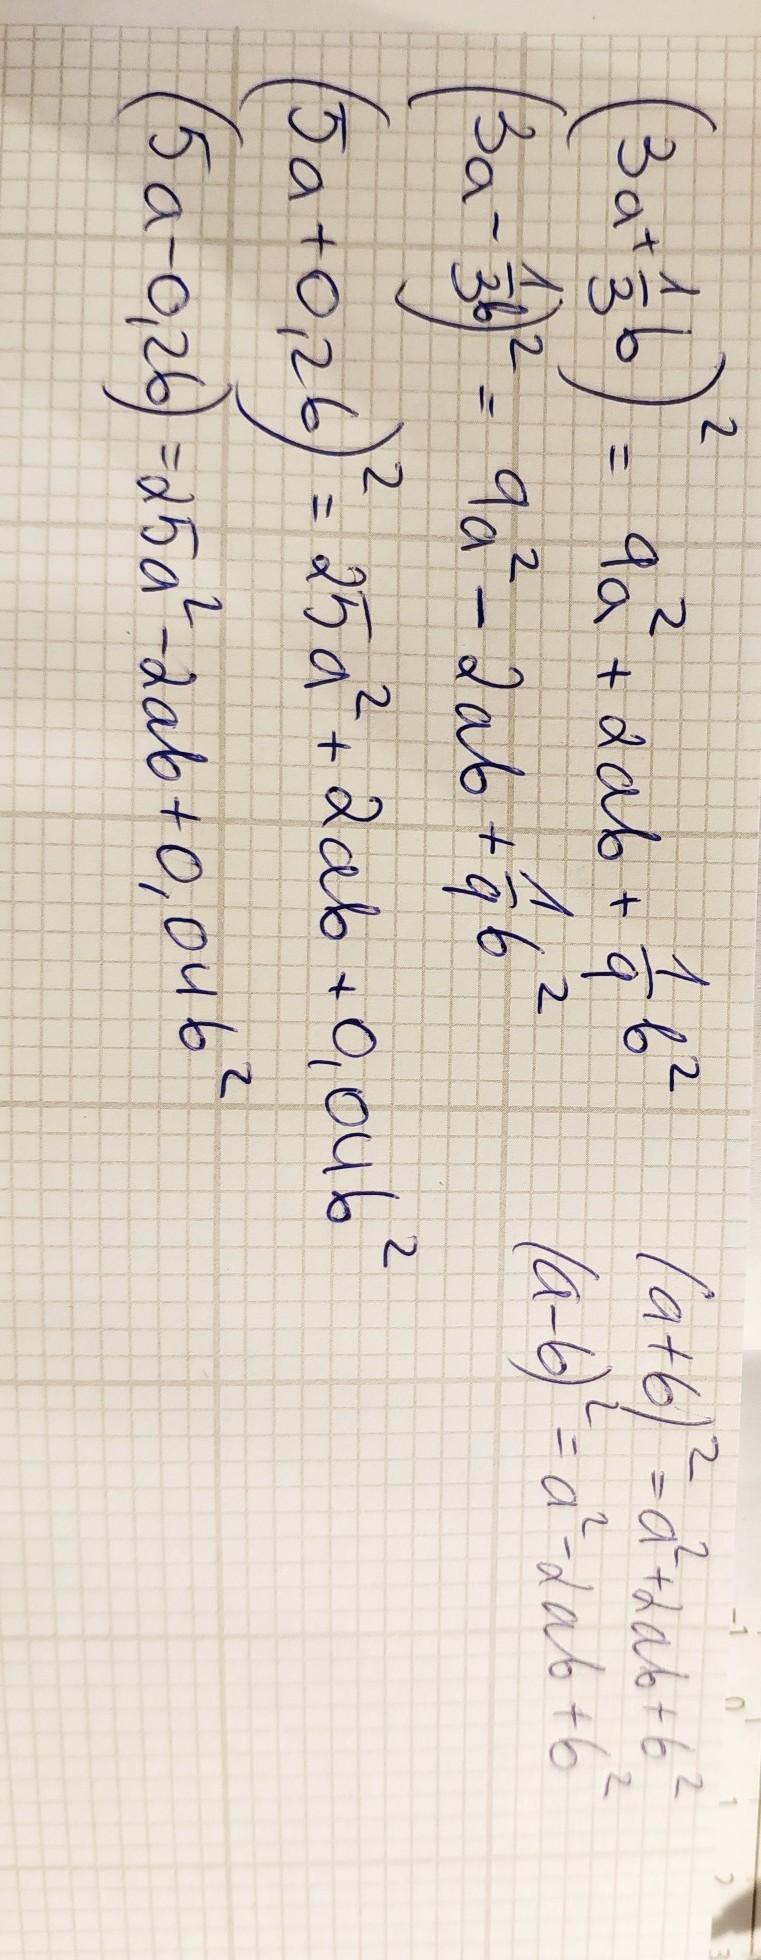 (3a+1/3b)² = 9a² + 2ab + 1/9b²
(3a-1/3b)² = 9a² - 2ab + 1/9b²
(5a+0,2b)² = 25a² + 2ab + 0,04b²
(5a-0,2b) = 25a² - 2ab + 0,04b²
(a+b)² = a² + 2ab + b²
(a-b)² = a² - 2ab + b²